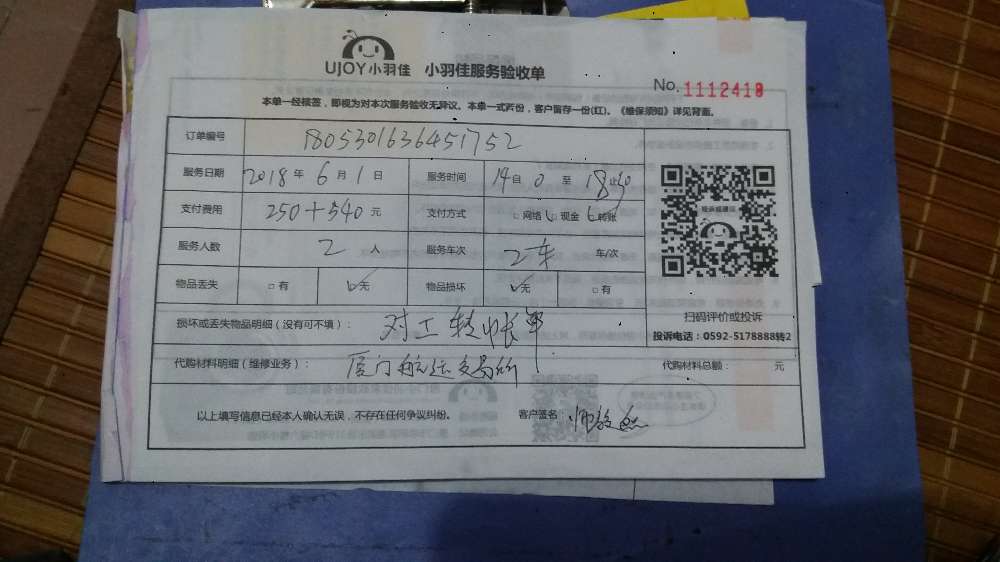 UJOY小羽佳 小羽佳服务验收单
No. 1112410
本单一经接签，即视为对本次服务验收无异议。本单一式两份，客户留存一份(红)。《维保须知》详见背面。
订单编号 1805301636451752
服务日期 2018年6月1日 服务时间 14自0至18止30
支付费用 250+540元 支付方式 □网络 □现金 转账
服务人数 2人 服务车次 2车 车/次
物品丢失 □有 无 物品损坏 无 □有
扫码评价或投诉
损坏或丢失物品明细（没有可不填）： 对工转帐单
投诉电话：0592-5178888转2
代购材料明细（维修业务）： 厦门航运交易所 代购材料总额： 元
以上填写信息已经本人确认无误，不存在任何争议纠纷。 客户签名：